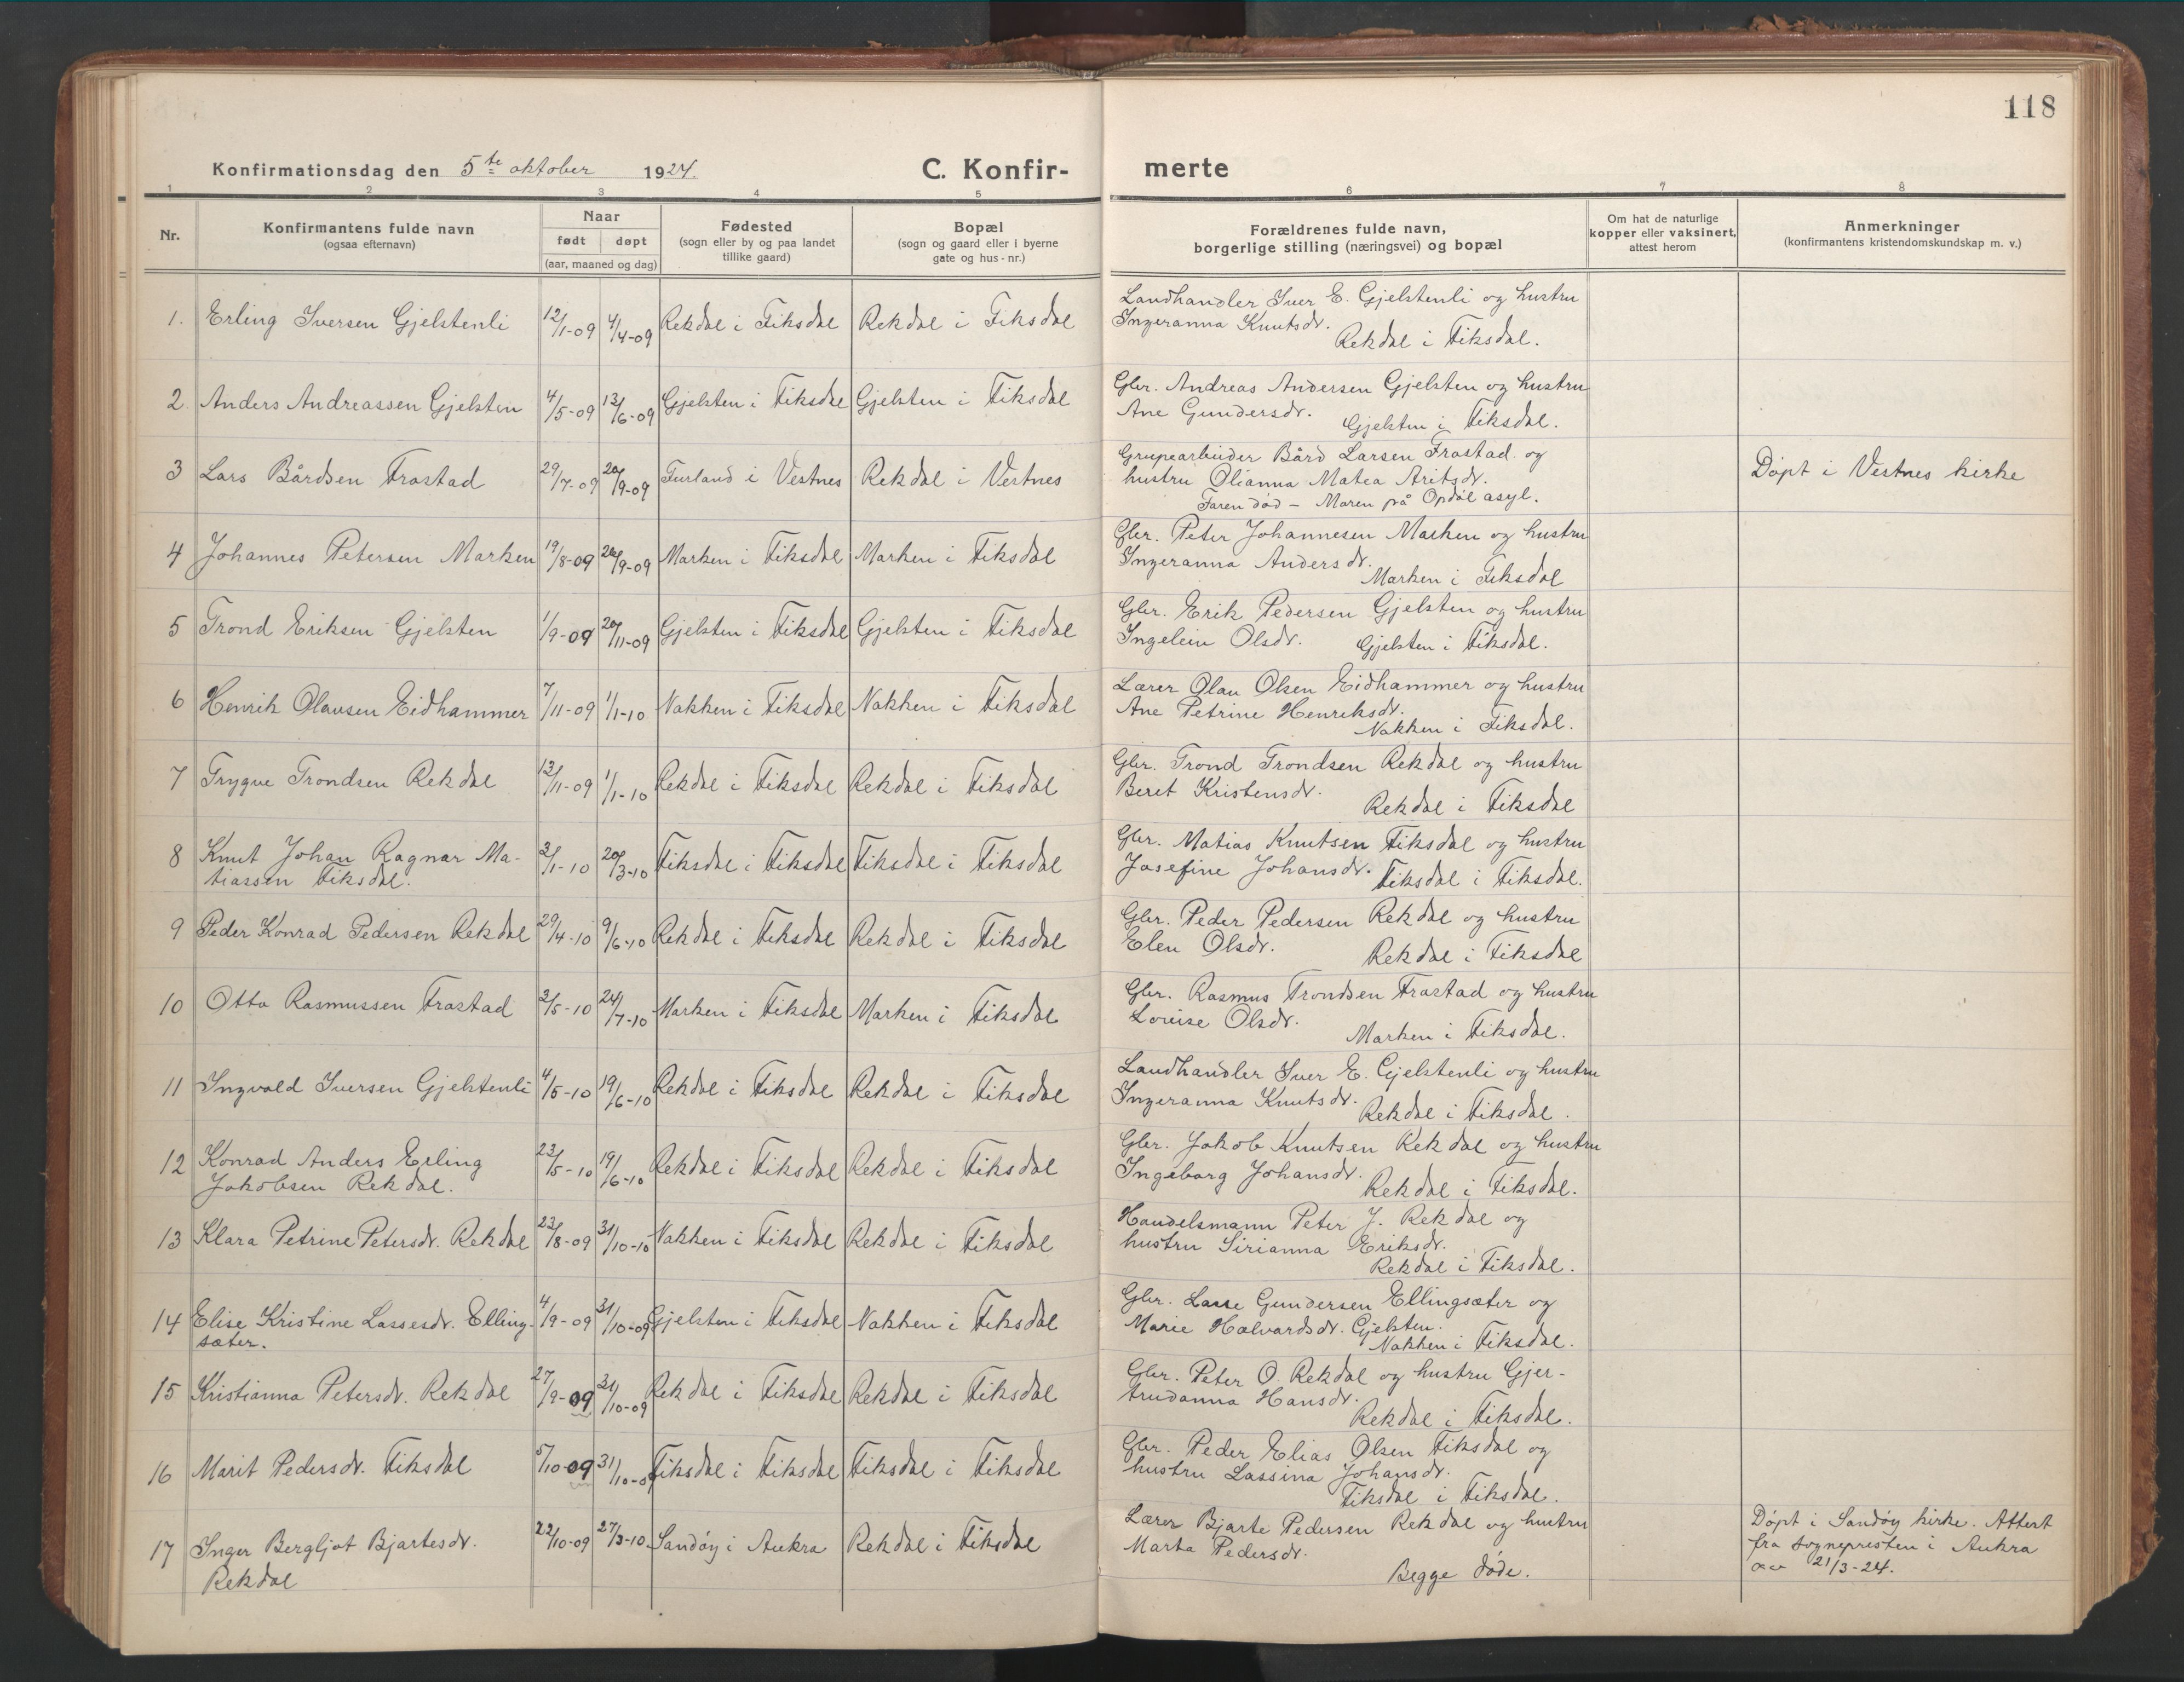 118
Konfirmationsdag den 5te oktober 1924. C. Konfir- merte
1 2 3 4 5 6 7 8
Nr.
Konfirmantens fulde navn
(ogsaa efternavn)
Naar
født døpt
(aar, maaned og dag)
Fødested
(sogn eller by og paa landet
tillike gaard)
Bopæl
(sogn og gaard eller i byerne
gate og hus-nr.)
Forældrenes fulde navn,
borgerlige stilling (næringsvei) og bopæl
Om hat de naturlige
kopper eller vaksinert,
attest herom
Anmerkninger
(konfirmantens kristendomskundskap m. v.)
1. Erling Iversen Gjelstenli 12/1-09 4/4-09 Rekdal i Fiksdal Rekdal i Fiksdal
Landhandler Iver E. Gjelstenli og hustru
Ingeranna Knutsdr.
Rekdal i Fiksdal.
2 Anders Andreassen Gjelsten 4/5-09 13/6-09 Gjelsten i Fiksdal Gjelsten i Fiksdal
Gbr. Andreas Andersen Gjelsten og hustru
Ane Gundersdr.
Gjelsten i Fiksdal.
3 Lars Bårdsen Frostad 29/7-09 20/9-09 Furland i Vestnes Rekdal i Vestnes
Grupearbeider Bård Larsen Frostad og
hustru Olianna Matea Aritsdr.
Faren død - Moren på Opdøl asyl.
Døpt i Vestnes kirke
4 Johannes Petersen Marken 19/8-09 26/9-09 Marken i Fiksdal Marken i Fiksdal
Gbr. Peter Johannesen Marken og hustru
Ingeranna Andersdr.
Marken i Fiksdal
5 Trond Eriksen Gjelsten 1/9-09 20/11-09 Gjelsten i Fiksdal Gjelsten i Fiksdal
Gbr. Erik Pedersen Gjelsten og hustru
Ingelein Olsdr.
Gjelsten i Fiksdal.
6 Henrik Olausen Eidhammer 7/11-09 1/1-10 Nakken i Fiksdal Nakken i Fiksdal
Lærer Olau Olsen Eidhammer og hustru
Ane Petrine Henriksdr.
Nakken i Fiksdal.
7 Trygve Trondsen Rekdal 13/11-09 1/1-10 Rekdal i Fiksdal Rekdal i Fiksdal
Gbr. Trond Trondsen Rekdal og hustru
Beret Kristensdr.
Rekdal i Fiksdal
8 Knut Johan Ragnar Ma-
tiassen Fiksdal. 3/1-10 20/3-10 Fiksdal i Fiksdal Fiksdal i Fiksdal
Gbr. Matias Knutsen Fiksdal og hustru
Josefine Johansdr. Fiksdal i Fiksdal.
9 Peder Konrad Pedersen Rekdal 29/4-10 9/6-10 Rekdal i Fiksdal Rekdal i Fiksdal
Gbr. Peder Pedersen Rekdal og hustru
Elen Olsdr.
Rekdal i Fiksdal
10 Otto Rasmussen Frostad 3/5-10 24/7-10 Marken i Fiksdal Marken i Fiksdal
Gbr. Rasmus Trondsen Frostad og hustru
Lovise Olsdr.
Marken i Fiksdal.
11 Ingvald Iversen Gjelstenli 4/5-10 19/6-10 Rekdal i Fiksdal Rekdal i Fiksdal
Landhandler Iver E. Gjelstenli og hustru
Ingeranna Knutsdr.
Rekdal i Fiksdal.
12 Konrad Anders Erling
Jakobsen Rekdal. 23/5-10 19/6-10 Rekdal i Fiksdal Rekdal i Fiksdal
Gbr. Jakob Knutsen Rekdal og hustru
Ingeborg Johansdr.
Rekdal i Fiksdal.
13 Klara Petrine Petersdr. Rekdal 23/8-09 31/10-10 Nakken i Fiksdal Rekdal i Fiksdal
Handelsmann Peter J. Rekdal og
hustru Sirianna Eriksdr.
Rekdal i Fiksdal.
14 Elise Kristine Lassesdr. Elling-
sæter. 4/9-09 31/10-09 Gjelsten i Fiksdal Nakken i Fiksdal
Gbr. Lasse Gundersen Ellingsæter og
Marie Halvardsdr. Gjelsten.
Nakken i Fiksdal.
15 Kristianna Petersdr. Rekdal 27/9-09 31/10-09 Rekdal i Fiksdal Rekdal i Fiksdal
Gbr. Peter O. Rekdal og hustru Gjer-
trudanna Hansdr.
Rekdal i Fiksdal.
16 Marit Pedersdr. Fiksdal 5/10-09 31/10-09 Fiksdal i Fiksdal Fiksdal i Fiksdal
Gbr. Peder Elias Olsen Fiksdal og
hustru Lassina Johansdr.
Fiksdal i Fiksdal.
17 Inger Bergljot Bjartesdr.
Rekdal 22/10-09 27/3-10 Sandøy i Aukra Rekdal i Fiksdal
Lærer Bjarte Pedersen Rekdal og hustru
Marta Pedersdr.
Begge døde.
Døpt i Sandøy kirke. Attest
fra sognepresten i Aukra
av 21/3-24.